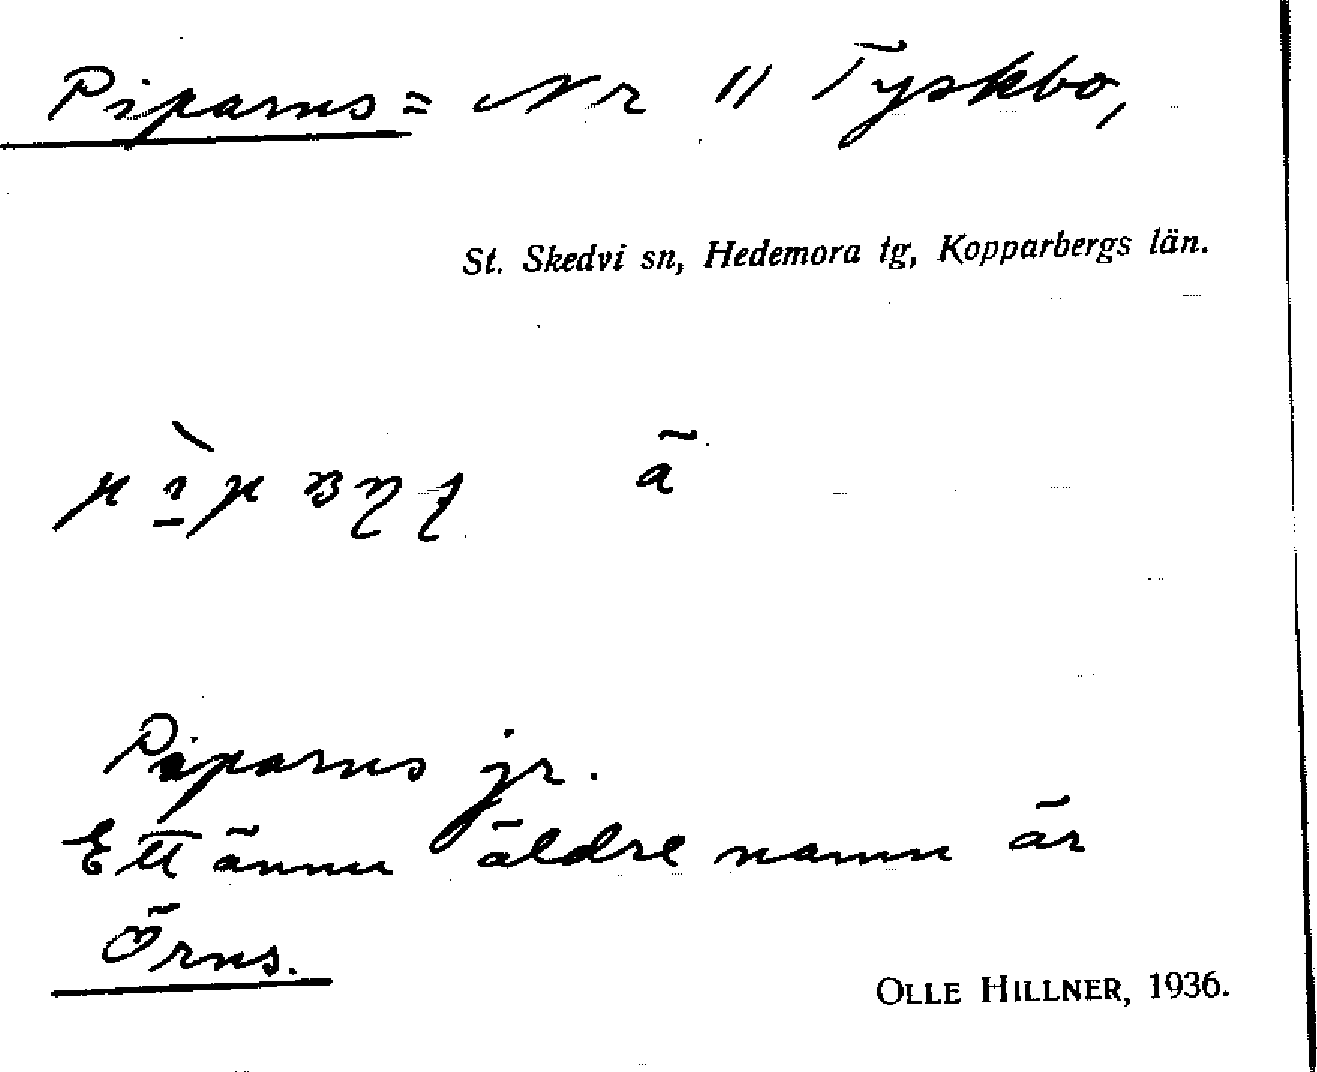 Piparns = Nr 11 Tyskbo,
St. Skedvi sn, Hedemora tg, Kopparbergs län.
ä
Piparns jr.
Ett ännu äldre namn är
Örns.
OLLE HILLNER, 1936.